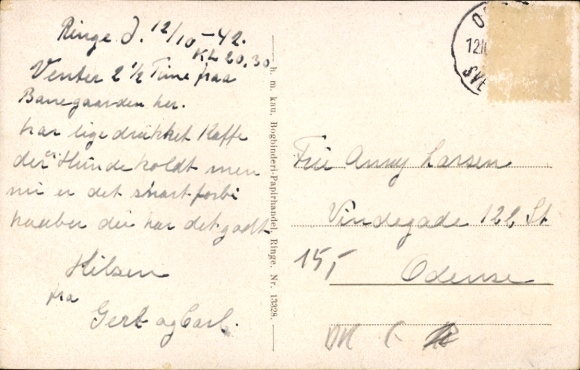 Ringe d. 12/10-42.
KL 20,30
Venter 2 1/2 Time fraa
Banegaarden her.
har lige drukket Kaffe
der Hundekoldt men
nu er det snart forbi
haaber du har det godt
Hilsen
fra
og Carl.
h. m. kau, Bogbinderi-Papirhandel, Ringe. Nr. 13328.
Anny Larsen
Vindegade St
15,
Odense